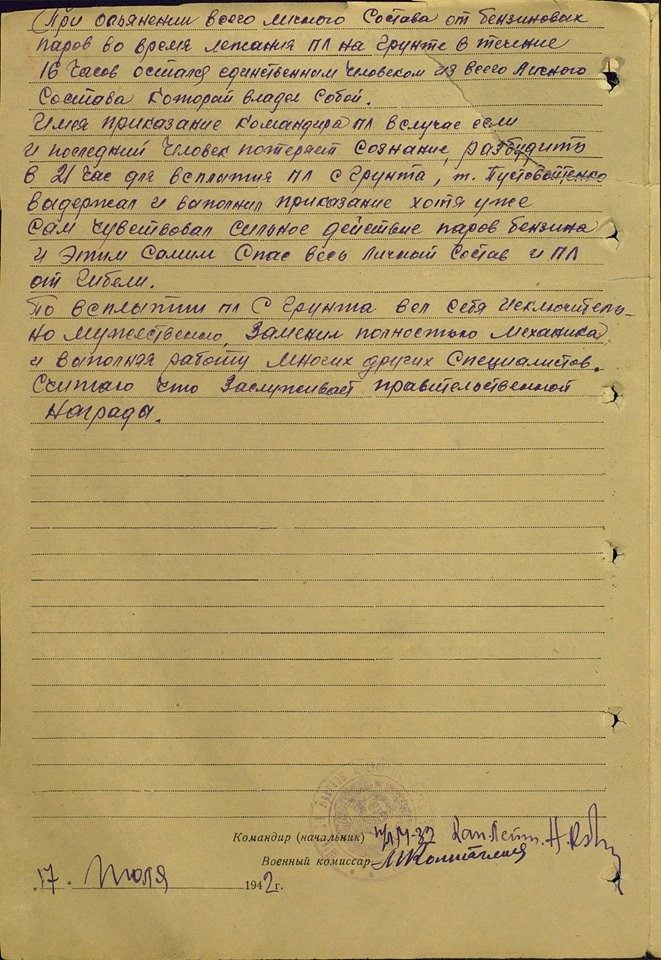 При опьянении всего личного состава от бензиновых
паров во время лежания ПЛ на грунте в течение
16 часов остался единственным человеком из всего личного
состава который владел собой.
Имея приказание командира ПЛ вслучае если
и последний человек потеряет сознание, разбудить
в 21 час для всплытия ПЛ с грунта, т. Пустовойтенко
выдержал и выполнил приказание хотя уже
сам чувствовал сильное действие паров бензина
и этим самым спас весь личный состав и ПЛ
от гибели.
По всплытии ПЛ с грунта вел себя исключитель-
но мужественно, заменил полностью механика,
и выполняя работу многих других специалистов.
Считаю что заслуживает правительственной
награды.
Командир (начальник) п/л М-32 Кап.лейт.
Военный комиссар
„17" Июля 1942 г.